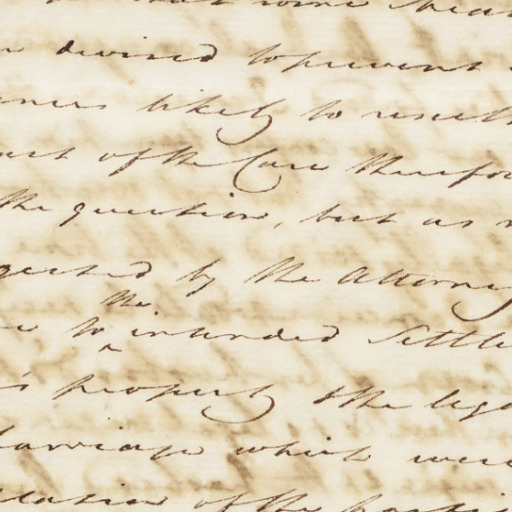 that some
devised to prevent
likely to result
of the Case therefo
the question, but as
gested by the Attorney
the
to intended Settle
property & the lega
Marriage which were
of the parti